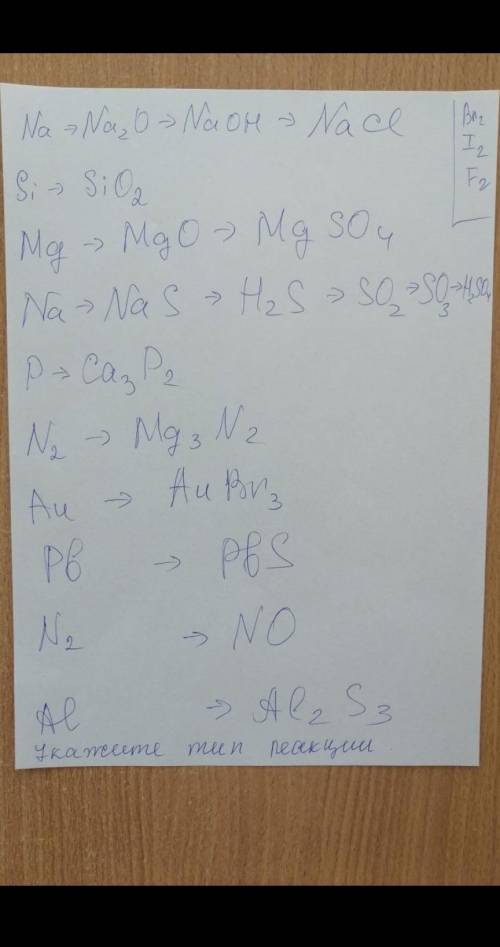 Na → Na₂O → NaOH → NaCl
Br₂
I₂
F₂
Si → SiO₂
Mg → MgO → MgSO₄
Na → NaS → H₂S → SO₂ → SO₃ → H₂SO₄
P → Ca₃P₂
N₂ → Mg₃N₂
Au → AuBr₃
Pb → PbS
N₂ → NO
Al → Al₂S₃
Укажите тип реакции